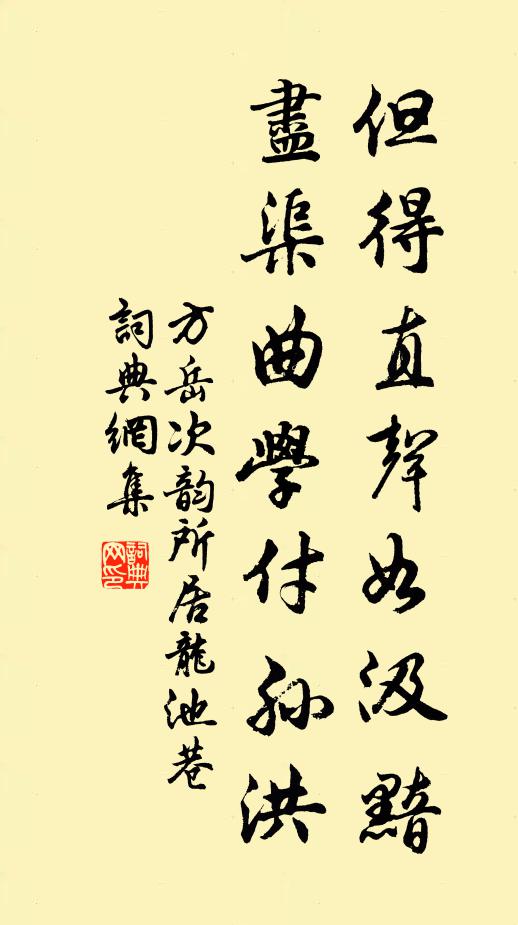 但得直聲如汲黯
盡渠曲學付孫洪
方岳次韵所居龍池巷
詞典網集
詞典
网印